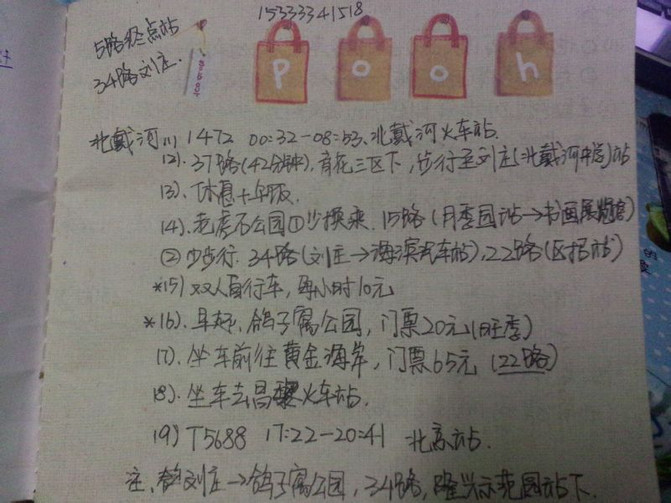 15333341518
5路终点站
34路刘庄.
Pooh
北戴河(1) 1472 00:32-08:53.北戴河火车站.
(2). 37路(42分钟),育花三区下,步行至刘庄(北戴河中学)站
(3). 休息+午饭.
(4). 老虎石公园①少换乘. 15路(月季园站→书画展览馆)
②少步行. 34路(刘庄→海滨汽车站),22路(区招站)
*(5) 双人自行车,每小时10元
*(6). 早起.鸽子窝公园,门票20元(旺季)
(7). 坐车前往黄金海岸,门票65元(22路)
(8). 坐车去昌黎火车站.
(9) T5688 17:22-20:41 北京站.
注. 刘庄→鸽子窝公园,34路,隆兴示范园站下